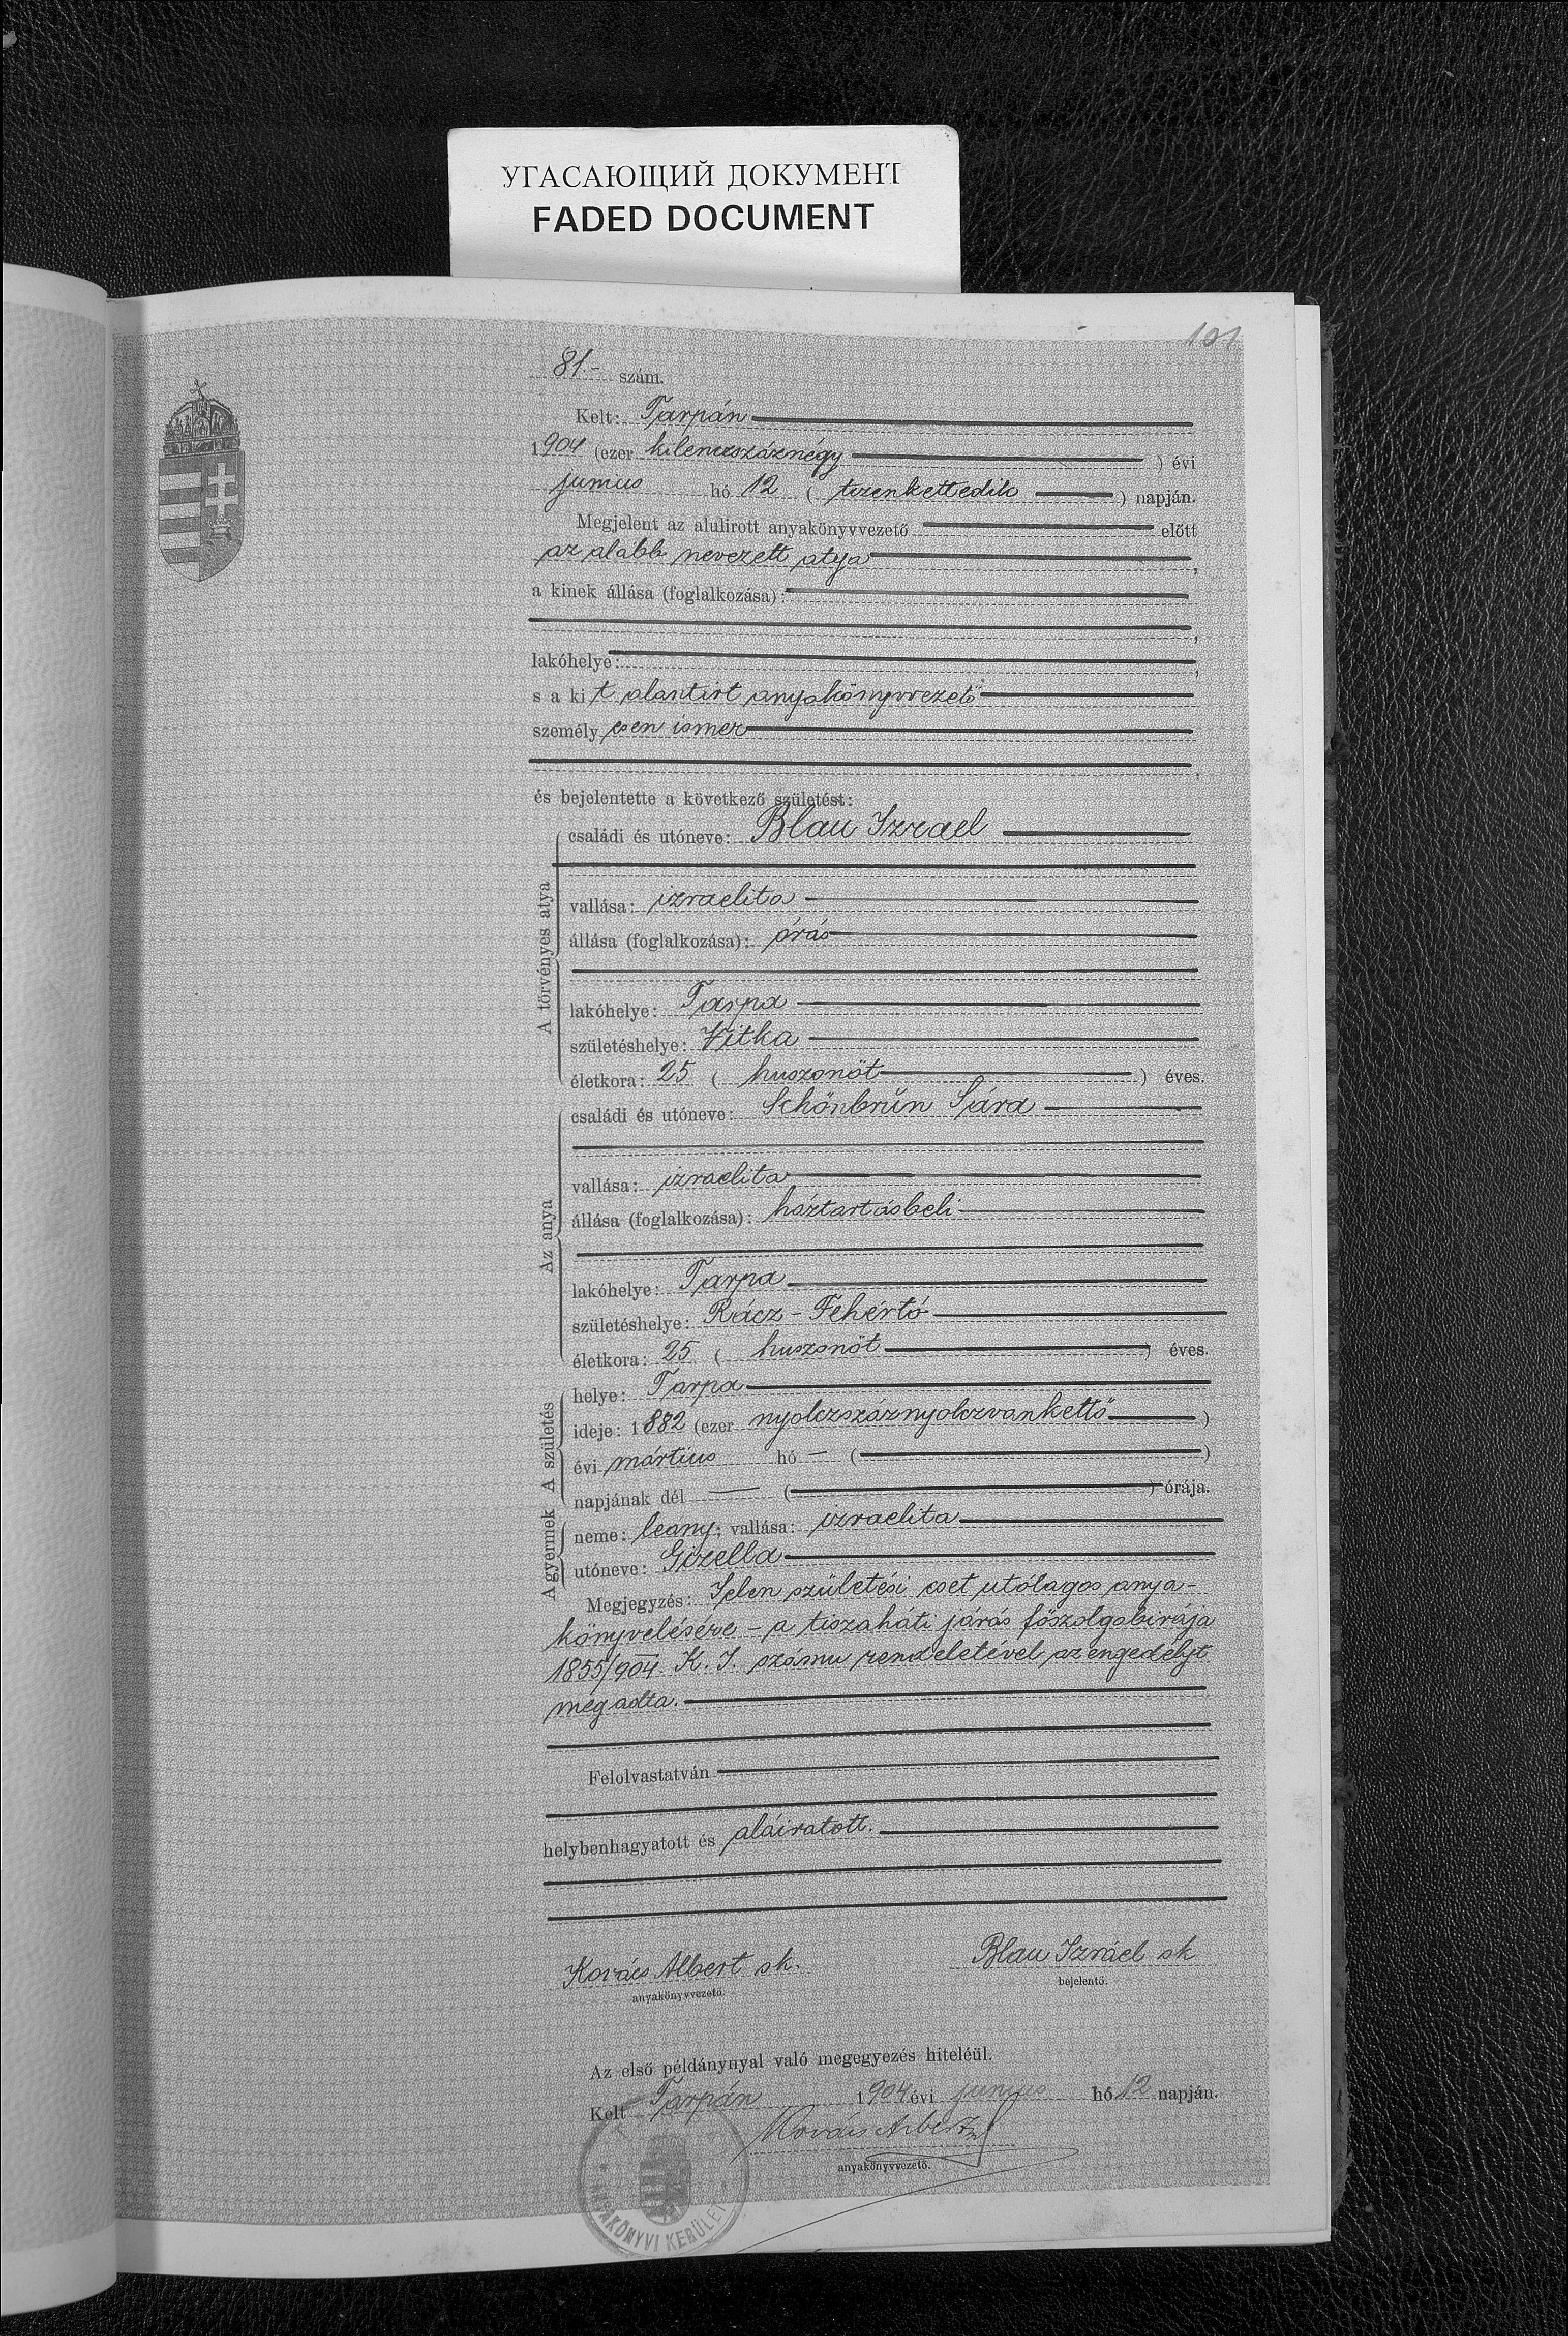 УГАСАЮЩИЙ ДОКУМЕНТ
FADED DOCUMENT
101
81- szám.
Kelt: Tarpán
1904 (ezer kilenczszáznégy ) évi
junius hó 12 ( tizenkettedik ) napján.
Megjelent az alulirott anyakönyvvezető előtt
az alább nevezett atya ,
a kinek állása (foglalkozása):
,
lakóhelye: ,
s a kit alantirt anyakönyvvezető
személyesen ismer
,
és bejelentette a következő születést:
A törvényes atya
családi és utóneve: Blau Izrael
vallása: izraelita
állása (foglalkozása): órás
lakóhelye: Tarpa
születéshelye: Vitka
életkora: 25 ( huszonöt ) éves.
Az anya
családi és utóneve: Schönbrün Sára
vallása: izraelita
állása (foglalkozása): háztartásbeli
lakóhelye: Tarpa
születéshelye: Rácz-Fehértó
életkora: 25 ( huszonöt ) éves.
A születés
helye: Tarpa
ideje: 1882 (ezer nyolczszáznyolczvankettő )
évi mártius hó — ( )
napjának dél — ( ) órája.
A gyermek
neme: leany; vallása: izraelita
utóneve: Gizella
Megjegyzés: Jelen születési eset utólagos anya-
könyvelésére - a tiszaháti járás főszolgabirája
1855/904. K. I. számu rendeletével az engedélyt
megadta.
Felolvastatván
helybenhagyatott és aláiratott.
Kovács Albert sk. Blau Izráel sk
anyakönyvvezető. bejelentő.
Az első példánynyal való megegyezés hiteléül.
Kelt Tarpán 1904 évi junius hó 12 napján.
Kovács Albert
anyakönyvvezető.
ANYAKÖNYVI KERÜLET